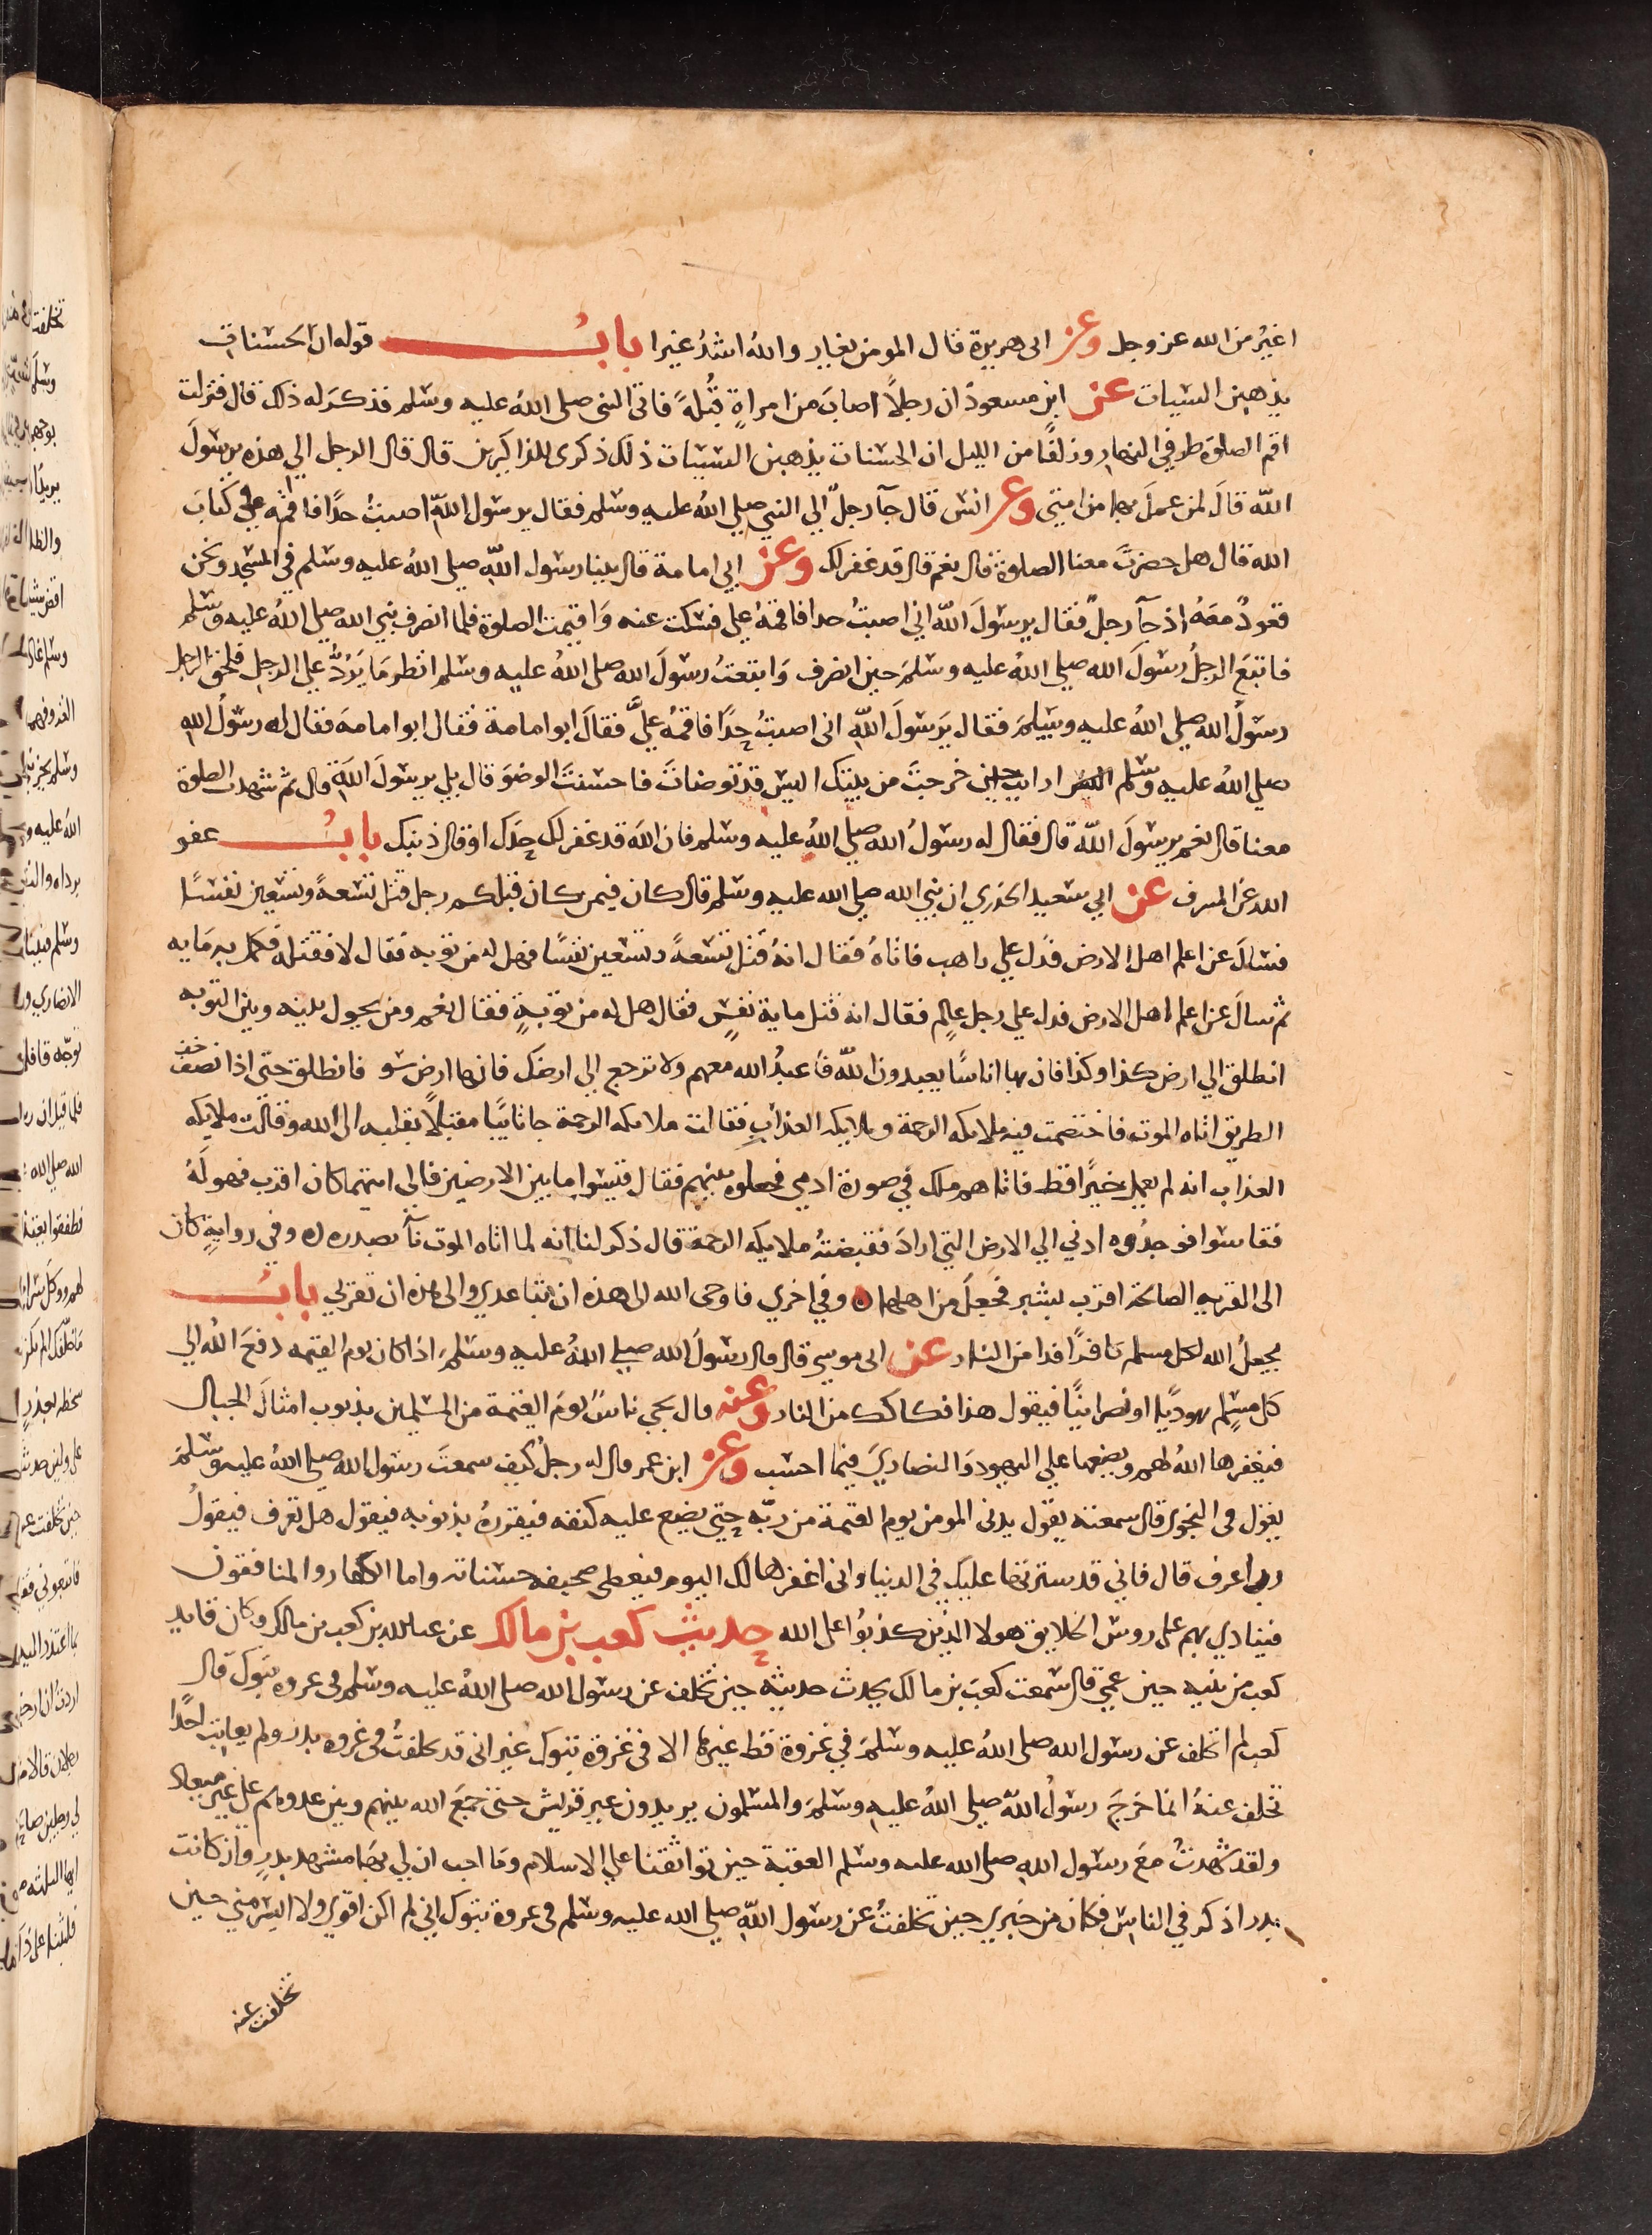 اغيرُ من الله عز وجل وعن ابى هريرة قال المومن يغار والله اشدُ غيرا بابُ قوله ان الحسنات
يذهبن السيات عن ابن مسعود ان رجلاً اصابَ من امراةٍ قُبلةً فاتى النبى صلى اللهُ عليه وسلم فذكرَ له ذلك قال فنزلت
اقم الصلوة طرفي النهار وزلفًا من الليل ان الحسنات يذهبن السييات ذلك ذكرى للذاكرين قال قال الرجل الي هذه يرسولَ
اللّه قالَ لمن عملَ بها من امتى وعن انس قال جآ رجلٌ الي النبي صلي اللهُ عليه وسلم فقال يرسول اللّه اصبتُ حدًا فاقمه علي كتابَ
الله قال هل حضرتَ معنا الصلوة قال نعم قال قد غفر لك وعن ابي امامة قال بينا رسول اللّه صلي اللهُ عليه وسلم في المسجد ونحن
قعودٌ معهُ اذ جآ رجلٌ فقال يرسولَ اللّه اني اصبتُ حدا فاقمهُ علي فسكت عنه وَاقيمت الصلوة فلما انصرف نبي الله صلي اللهُ عليه وسلم
فاتبعَ الرجلُ رسولَ الله صلي اللهُ عليه وسلمَ حين انصرف وَاتبعتُ رسولَ الله صلى اللهُ عليه وسلم انظر مَا يَرُدُّ علي الرجل فلحق الرجل
رسولَ الله صلي اللهُ عليه وسلمَ فقال يَرسولَ اللّه انى اصبتُ حدًا فاقمهُ عليَّ فقالَ ابو امامة فقال ابو امامة فقال له رسولُ الله
صلي اللهُ عليه وسلم ارايت حين خرجتَ من بيتك اليس قد توضاتَ فاحسنتَ الوضوَ قال بلي يرسولَ اللّه قال ثم شهدت الصلوة
معنا قال نعم يرسولَ اللّه قال فقال له رسولُ الله صلي اللهُ عليه وسلم فان اللهَ قد غفر لك حدَك او قال ذنبك بابُ عفو
الله عن المسرف عن ابي سعيد الخدري ان نبي الله صلي الله عليه وسلم قال كان فيمن كان قبلكم رجل قتل تسعةً وتسعين نفسًا
فسالَ عن اعلم اهل الارض فدُل علي راهب فاتاهُ فقال انهُ قَتَل تسعةً وتسعين نفسًا فهل له من توبه فقال لا فقتله فكمل به مايه
ثم سالَ عن اعلم اهل الارض فدل علي رجل عالِم فقال انه قتل ماية نفسٍ فقال هل له من توبةٍ فقال نعم ومن يحول بينه وبين التوبه
انطلق الي ارض كذا وكذا فان بها اناسًا يعبدون اللّه فاعبدُ الله معهم ولا ترجع الي ارضك فانها ارض سو فانطلق حتى اذا نصف
الطريق اتاه الموت فاختصمت فيه ملايكه الرحمة وملايكه العذاب فقالت ملايكه الرحمة جا تايبًا مقبلًا بقلبه الى الله وقالت ملايكه
العذاب انه لم يعمل خيرًا قط فاتاهم ملك في صورة ادمي فجعلوه بينهم فقال قيسوا ما بين الارضين فالى ايتهما كان اقرب فهو لَهُ
فقاسوا فوجدُوه ادني الي الارض التي ارادَ فقبضتهُ ملايكه الرحمة قال ذكر لنا انه لما اتاه الموت نآ بصدره وفي روايةٍ كان
الى القريه الصالحة اقرب بشبر فجعلَ من اهلها وفي اخري فاوحى الله الى هذه ان تباعدي والى هذه ان تقربي بابُ
يجعلُ الله لكل مسلم كافرًا فدا من النار عن ابى موسي قال قال رسولُ الله صلي اللهُ عليه وسلمَ اذا كان يوم القيمه دفعَ اللهُ الي
كل مسلِم يهوديًا او نصرانيًا فيقول هذا فكاكك من النار وعنه قال يجي ناسٌ يومَ القيمة من المسلمين بذنوب امثالَ الجبال
فيغفرها اللهُ لهم ويضعها علي اليهود والنصاريَ فيما احسب وعن ابن عمر قال له رجلٌ كيف سمعتَ رسول الله صلي اللهُ عليه وسلمَ
يقول في النجوي قال سمعته يقول يدنى المومن يوم القيمة من ربّه حتي يضع عليه كنفه فيقررهُ بذنوبه فيقول هل تعرف فيقولُ
رب اعرف قال فاني قد سترتها عليك في الدنيا وانى اغفرها لك اليوم فيعطي صحيفه حسناته واما الكفار والمنافقون
فينادي بهم على روس الخلايق هولا الذين كذبُوا على الله حديث كعب بن مالك عن عبدالله بن كعب بن مالك وكان قايد
كعب من بنيه حين عمي قال سمعت كعبَ بن مالك يحدث حديثه حين تخلف عن رسول الله صلى اللهُ عليه وسلم في غزوه تبوك قال
كعب لم اتخلف عن رسول الله صلى اللهُ عليه وسلمَ في غزوة قط غيرها الا في غزوة تبوك غير انى قد تخلفتُ في غزوه بدر ولم يعاتب احدًا
تخلف عنهُ انما خرجَ رسولُ اللّه صلي اللهُ عليه وسلمَ والمسلمون يريدون عير قريش حتى جمعَ الله بينهم وبين عدوهم علي غير ميعاد
ولقد شهدتُ معَ رسول الله صلى الله عليه وسلم العقبة حين تواثقنا علي الاسلام ومَا احب ان لي بهَا مشهد بدرٍ وان كانت
بدر اذكر في الناسِ فكان من خبري حين تخلفتُ عن رسول اللّه صلي الله عليه وسلم في غزوة تبوك اني لم اكن اقوي ولا ايسر مني حين
تخلفت عنه